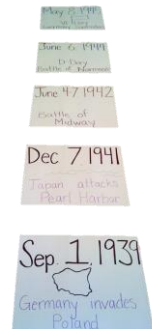 May 8, 1945
June 6, 1944
D Day
Battle of Normandy
June 4-7 1942
Battle of
Midway
Dec 7, 1941
Japan attacks
Pearl Harbor
Sep. 1, 1939
Germany invades
Poland